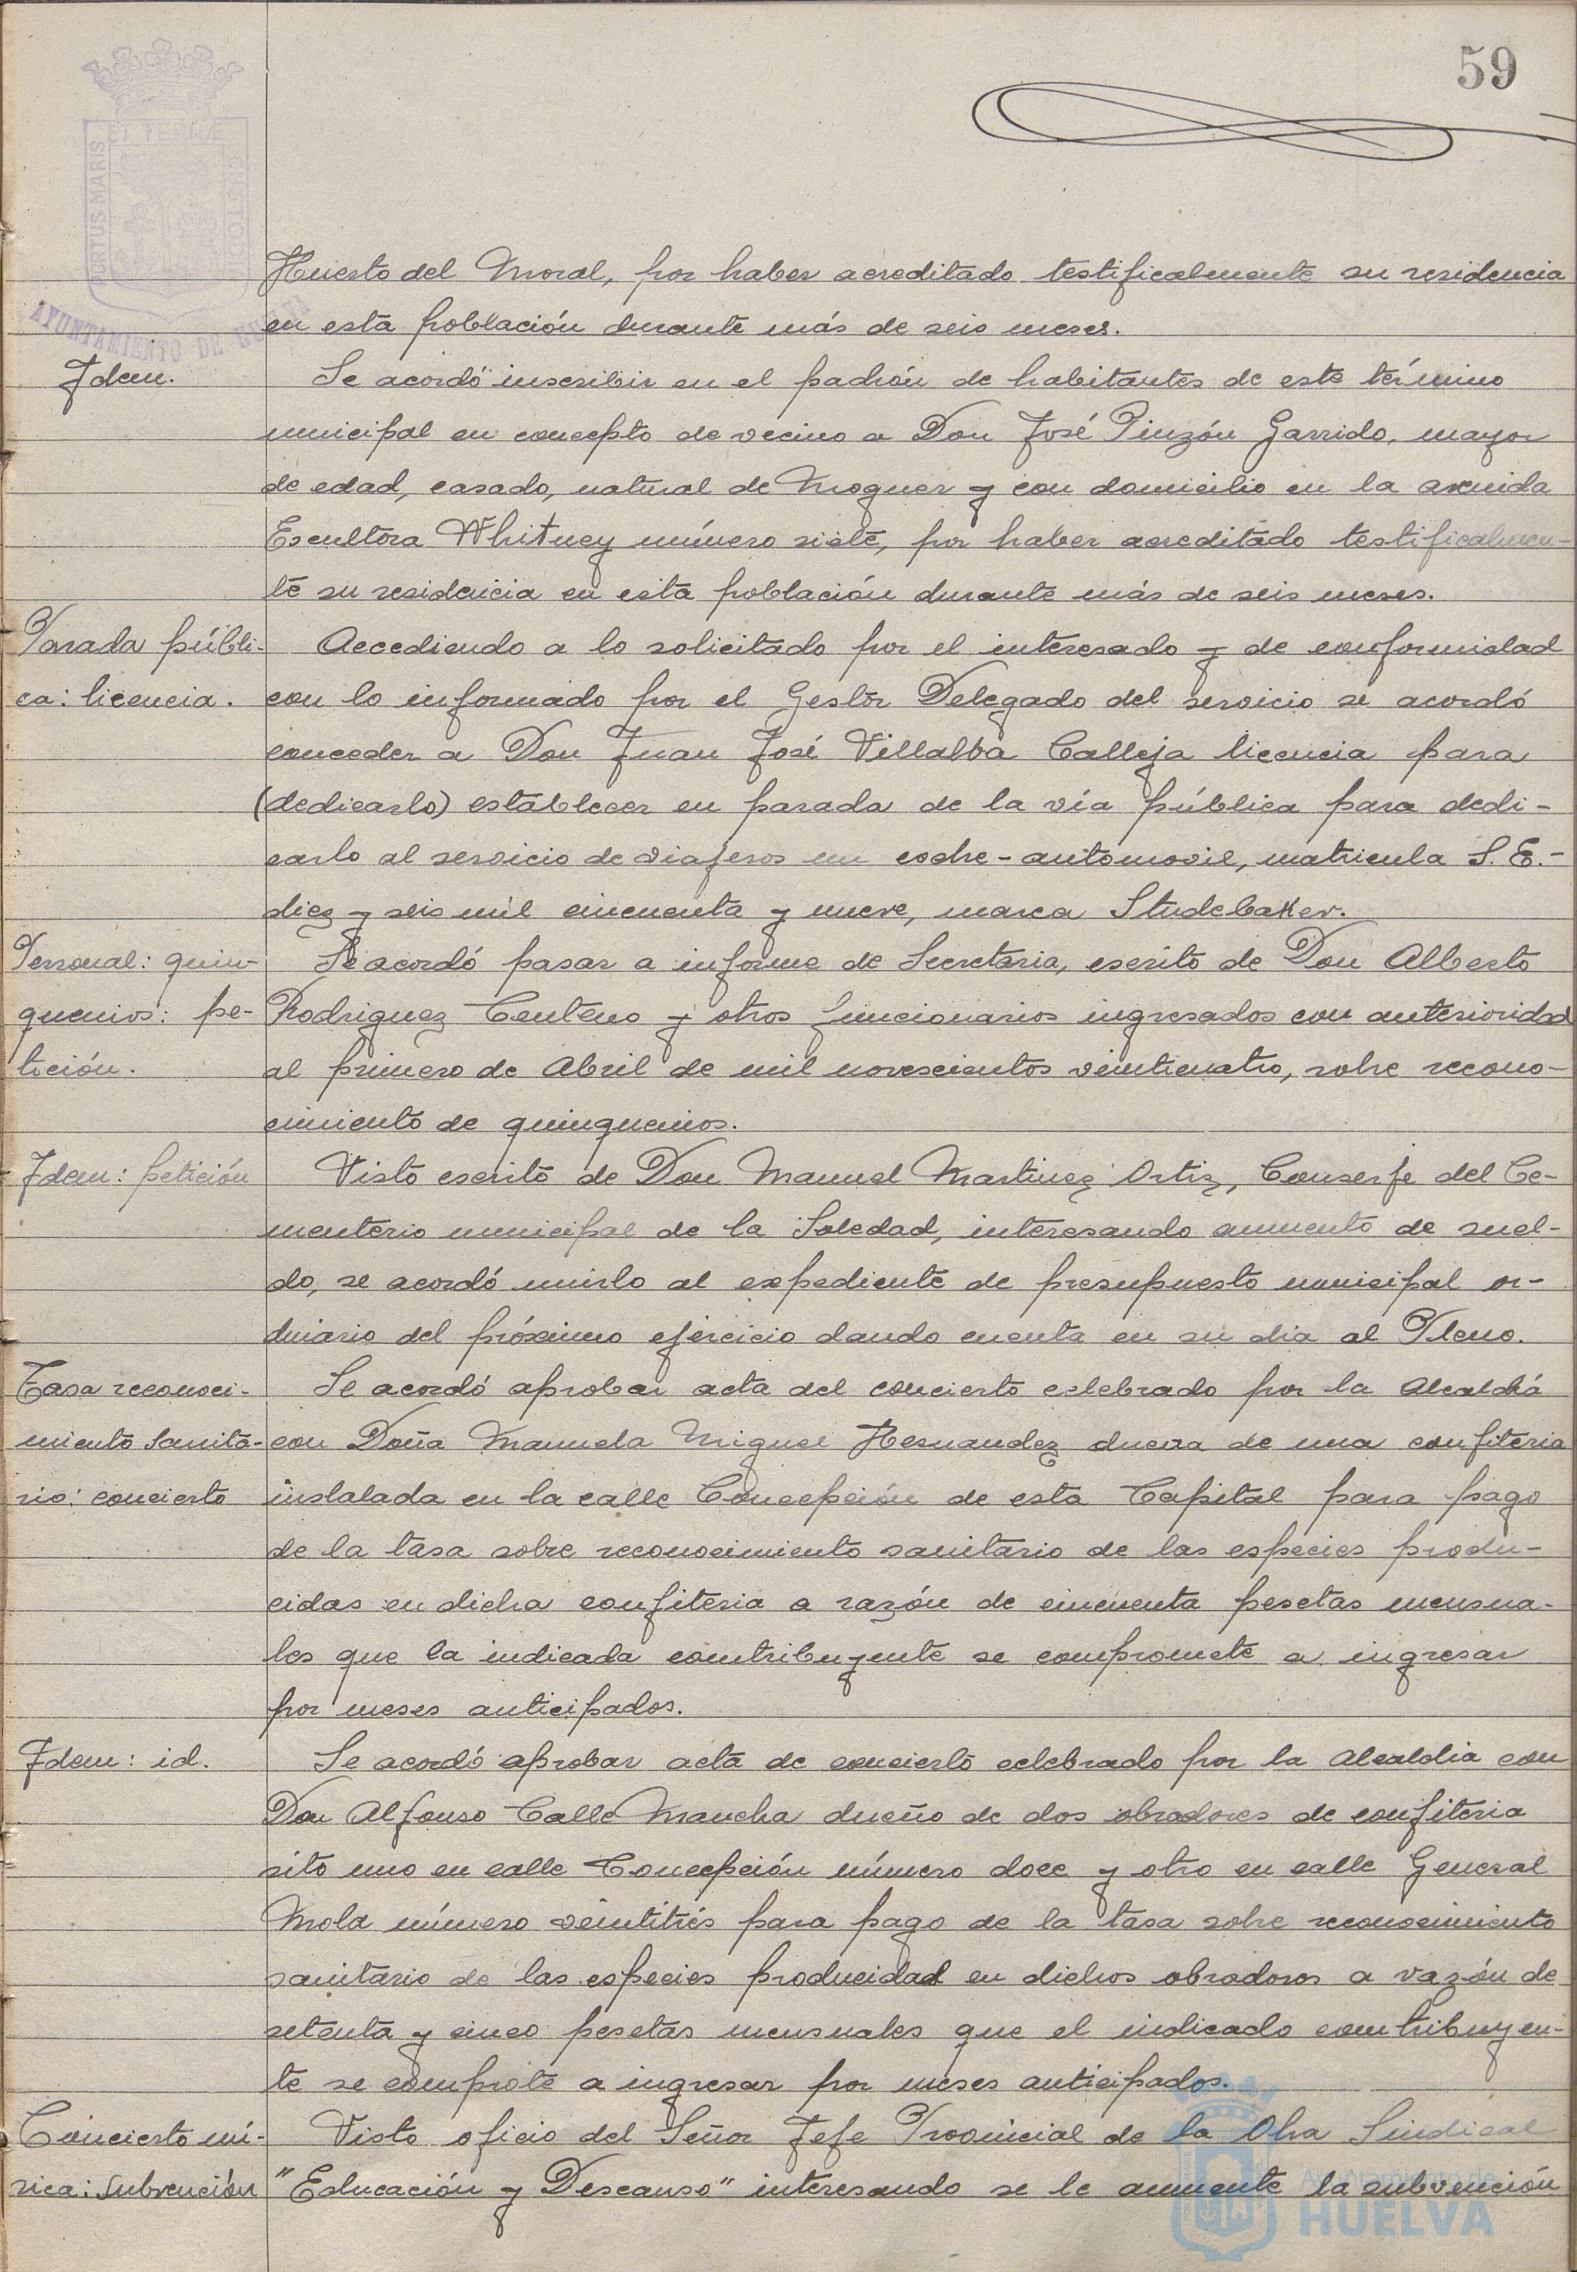 59
PORTUS MARIS ET TERRÆ CUSTODIA
AYUNTAMIENTO DE HUELVA
Huerto del Moral, por haber acreditado testificalmente su residencia
en esta población durante más de seis meses.
Idem.
Se acordó inscribir en el padrón de habitantes de este término
municipal en concepto de vecino a Don José Pinzón Garrido, mayor
de edad, casado, natural de Moguer y con domicilio en la avenida
Escultora Whitney número siete, por haber acreditado testificalmen-
te su residencia en esta población durante más de seis meses.
Parada públi-
ca: licencia.
Accediendo a lo solicitado por el interesado y de conformidad
con lo informado por el Gestor Delegado del servicio se acordó
conceder a Don Juan José Villalba Calleja licencia para
(dedicarlo) establecer en parada de la vía pública para dedi-
carlo al servicio de viajeros un coche-automovil, matricula S.E.-
diez y seis mil cincuenta y nueve, marca Studebaker.
Personal: quin-
quenios: pe-
tición.
Se acordó pasar a informe de Secretaria, escrito de Don Alberto
Rodriguez Centeno y otros funcionarios ingresados con anterioridad
al primero de Abril de mil novescientos veinticuatro, sobre recono-
cimiento de quinquenios.
Idem: petición
Visto escrito de Don Manuel Martinez Ortiz, Conserje del Ce-
menterio municipal de la Soledad, interesando aumento de suel-
do, se acordó unirlo al expediente de presupuesto municipal or-
dinario del próximo ejercicio dando cuenta en su dia al Pleno.
Tasa reconoci-
miento Sanita-
rio: concierto
Se acordó aprobar acta del concierto celebrado por la Alcaldiá
con Doña Manuela Miguel Hernandez dueña de una confiteria
instalada en la calle Concepción de esta Capital para pago
de la tasa sobre reconocimiento sanitario de las especies produ-
cidas en dicha confiteria a razón de cincuenta pesetas mensua-
les que la indicada contribuyente se compromete a ingresar
por meses anticipados.
Idem: id.
Se acordó aprobar acta de concierto celebrado por la Alcaldia con
Don Alfonso Calle Mancha dueño de dos obradores de confiteria
sito uno en calle Concepción número doce y otro en calle General
Mola número veintitrés para pago de la tasa sobre reconocimiento
sanitario de las especies producidad en dichos obradores a razón de
setenta y cinco pesetas mensuales que el indicado contribuyen-
te se comprote a ingresar por meses anticipados.
Concierto mú-
sica: subvención
Visto oficio del Señor Jefe Provincial de la Obra Sindical
"Educación y Descanso" interesando se le aumente la subvención
Ayuntamiento de
HUELVA